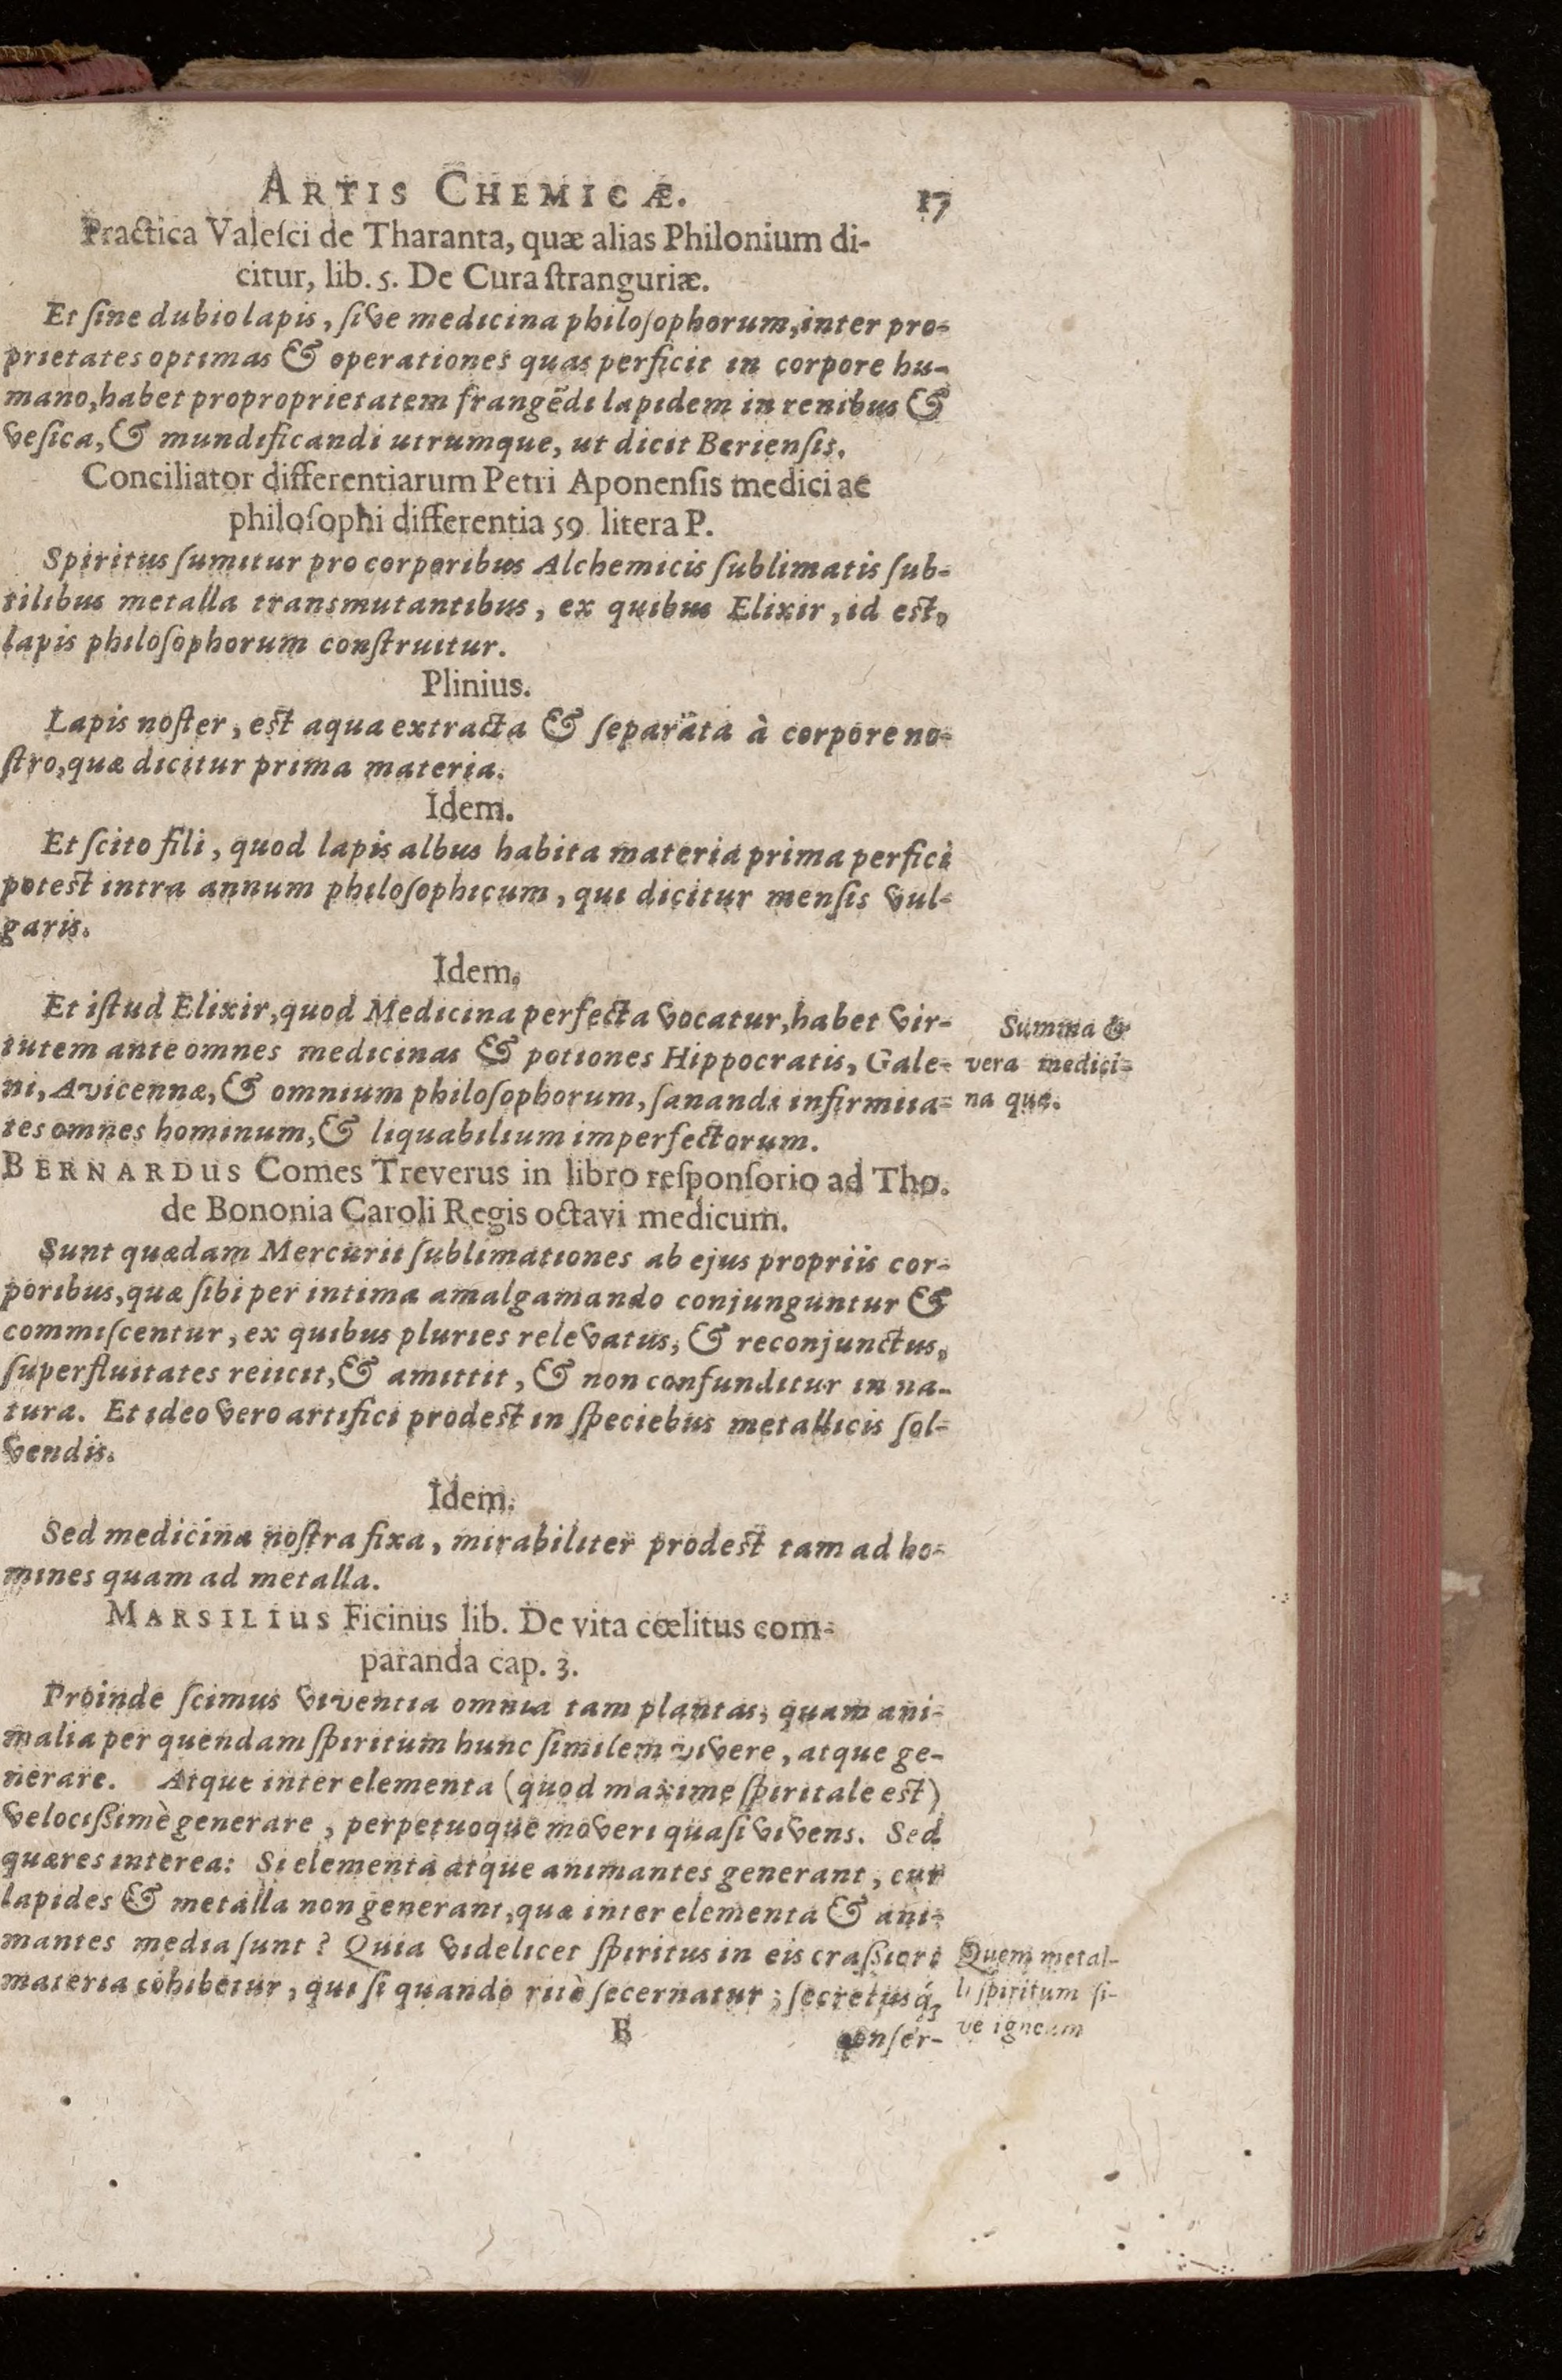 ARTIS CHEMICÆ. 17
Practica Valeſci de Tharanta, quæ alias Philonium di-
citur, lib. 5. De Cura ſtranguriæ.
Et ſine dubio lapis, ſive medicina philoſophorum, inter pro-
prietates optimas & operationes quas perficit in corpore hu-
mano, habet proproprietatem frangẽdi lapidem in renibus &
veſica, & mundificandi utrumque, ut dicit Berienſis.
Conciliator differentiarum Petri Aponenſis medici ac
philoſophi differentia 59 litera P.
Spiritus ſumitur pro corporibus Alchemicis ſublimatis ſub-
tilibus metalla transmutantibus, ex quibus Elixir, id eſt,
lapis philoſophorum conſtruitur.
Plinius.
Lapis noſter, eſt aqua extracta & ſeparata à corpore no-
ſtro, quæ dicitur prima materia.
Idem.
Et ſcito fili, quod lapis albus habita materia prima perfici
poteſt intra annum philoſophicum, qui dicitur menſis vul-
garis.
Idem.
Et iſtud Elixir, quod Medicina perfecta vocatur, habet vir-
tutem ante omnes medicinas & potiones Hippocratis, Gale-
ni, Avicennæ, & omnium philoſophorum, ſanandi infirmita-
tes omnes hominum, & liquabilium imperfectorum.
Summa &
vera medici-
na quæ.
BERNARDUS Comes Treverus in libro reſponſorio ad Tho.
de Bononia Caroli Regis octavi medicum.
Sunt quædam Mercurii ſublimationes ab ejus propriis cor-
poribus, quæ ſibi per intima amalgamando conjunguntur &
commiſcentur, ex quibus pluries relevatus, & reconjunctus,
ſuperfluitates reiicit, & amittit, & non confunditur in na-
tura. Et ideo vero artifici prodeſt in ſpeciebus metallicis ſol-
vendis.
Idem.
Sed medicina noſtra fixa, mirabiliter prodeſt tam ad ho-
mines quam ad metalla.
MARSILIUS Ficinus lib. De vita cœlitus com-
paranda cap. 3.
Proinde ſcimus viventia omnia tam plantas, quam ani-
malia per quendam ſpiritum hunc ſimilem vivere, atque ge-
nerare. Atque inter elementa (quod maxime ſpiritale eſt)
velociſſimè generare, perpetuoque moveri quaſi vivens. Sed
quæres interea: Si elementa atque animantes generant, cur
lapides & metalla non generant, quæ inter elementa & ani-
mantes media ſunt? Quia videlicet ſpiritus in eis craſſiore
materia cohibetur, qui ſi quando ritè ſecernatur, ſecretusq́;
Quem metal-
li ſpiritum ſi-
ve igneum
B conſer-